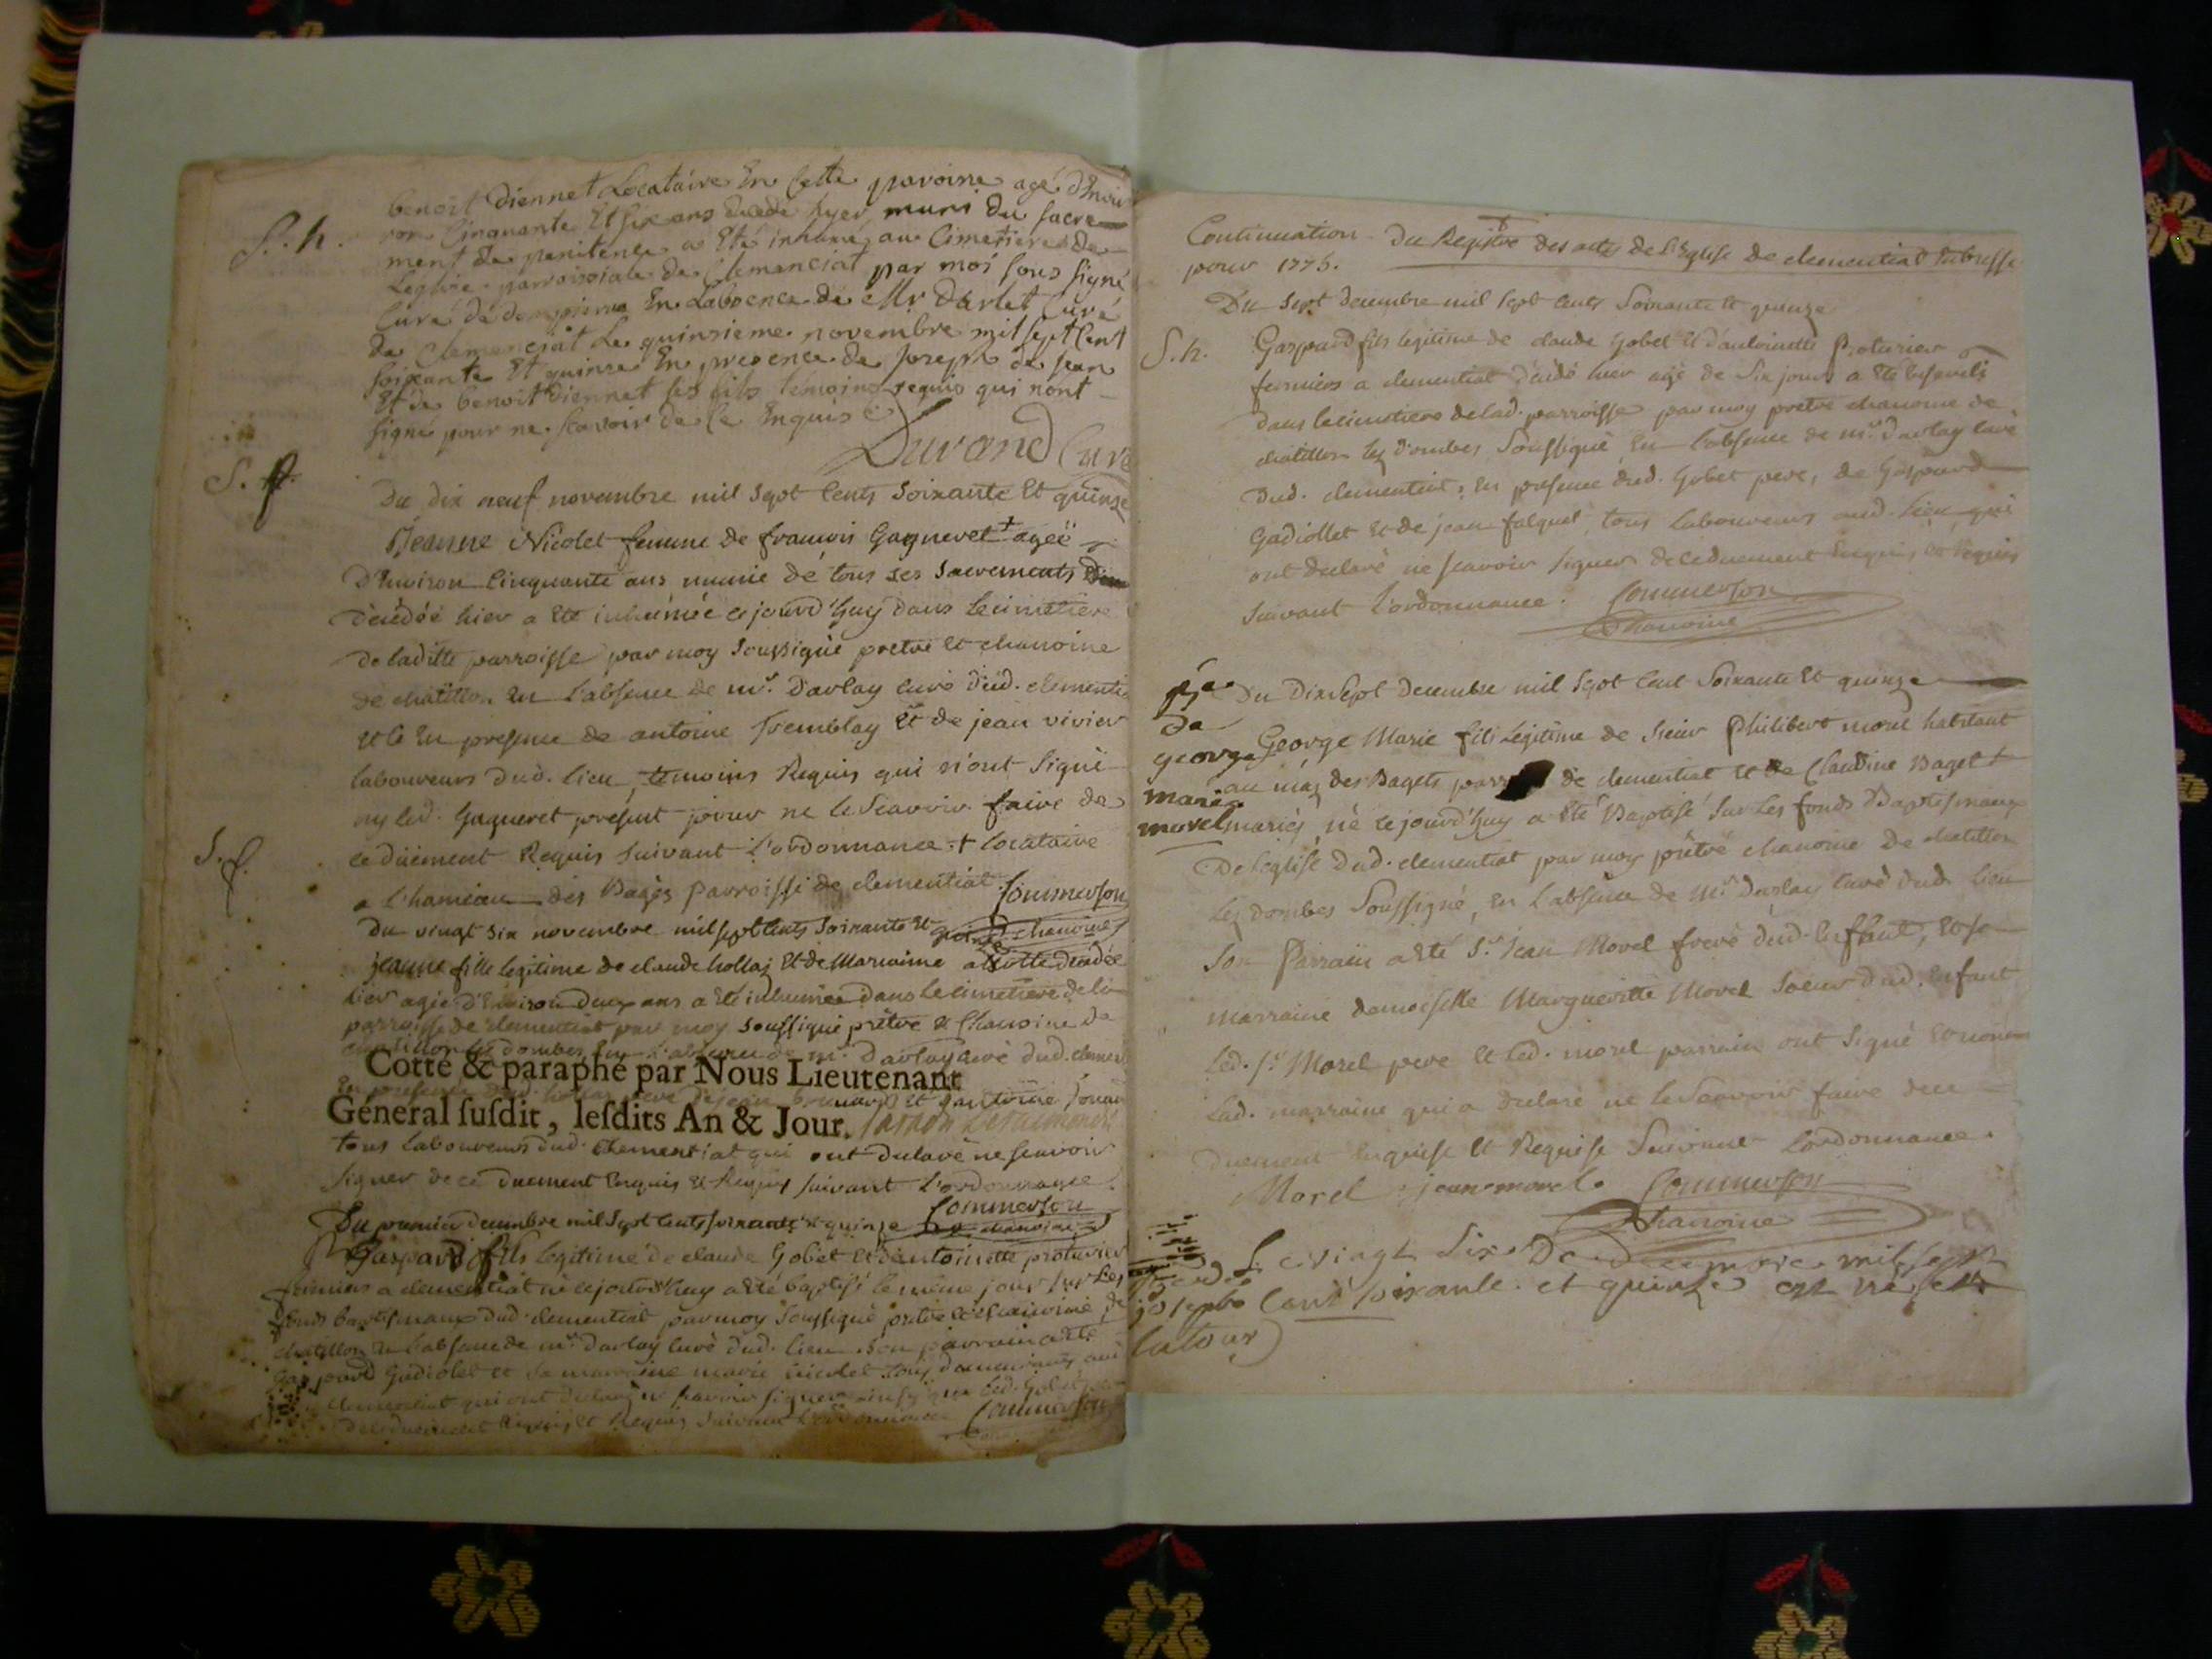 S. h.
benoit Diennet Locataire En Cette paroisse agé d'Envi
ron Cinquante Et six ans decedé hyer, muni du sacre
ment de penitence a Eté inhumé au Cimetiere de
Leglise parroissiale de Clemenciat par moi sous signé
Curé de dompierre En Labsence de Mr Darlet Curé
de Clemenciat Le quinsieme novembre mil sept Cent
soixante Et quinse En presence de joseph de jean
Et de benoit Diennet ses fils temoins requis qui nont
signé pour ne scavoir de Ce Enquis
Durand Curé
S. f.
Du dix neuf novembre mil sept Cents soixante Et quinze
Jeanne Nicolet femme de francois Gagneret + agée
d'Environ Cinquante ans munie de tous ses sacrements
décédée hier a Eté inhumée ce jourd'huy dans le cimetiere
de laditte parroisse par moy soussigné pretre Et chanoine
de chatillon En l'absence de mr. Darlay curé dud. clementia
Et ce En presence de antoine Tremblay Et de jean vivier
laboureurs dud. lieu, temoins Requis qui n'ont signé
ny led. Gagneret present pour ne le scavoir faire de
ce düement Requis suivant l'ordonnance + locataire
a l'hameau des Bagés Parroisse de clementiat. Commerson
chanoine
S. f.
Du vingt six novembre mil sept Cents soixante Et quinze
jeanne fille legitime de claude hollaz Et de Marianne décédée
hier agée d'Environ deux ans a Eté inhumée dans le cimetiere de la
parroisse de clementiat par moy soussigné prêtre & Chanoine de
chatillon les dombes En l'absence de mr. Darlay curé dud. clemen
Cotté & paraphé par Nous Lieutenant
En presence dud. hollaz pere de jean Et d'antoine
Général susdit, lesdits An & Jour.
tous laboureurs dud. Clementiat qui ont declaré ne scavoir
signer de ce duement Enquis & Requis suivant l'ordonnance.
Commerson
chanoine
Du premier decembre mil sept Cents soixante & quinze
Gaspard fils legitime de claude Gobet Et d'antoinette proturier
fermiers a clementiat né cejourd'huy a été baptisé le même jour sur Les
fonds baptismaux dud. clementiat par moy soussigné pretre & chanoine de
chatillon En l'absence de mr. Darlay curé dud. lieu. Son parrain a Eté
Gaspard Gadiolet et sa marraine marie nicolet tous demeurants aud
clementiat qui ont declaré ne scavoir signer ainsy que led. Gobet
de ce duement Enquis Et Requis suivant l'ordonnance Commerson
Continuation du Registre des actes de l'Eglise de clementiat En bresse
pour 1775.
Du sept decembre mil sept Cents Soixante Et quinze
S. h.
Gaspard fils legitime de claude Gobet Et d'antoinette Proturier
fermiers a clementiat décédé hier agé de six jours a Eté Enseveli
dans le cimetiere de lad. parroisse par moy pretre chanoine de
chatillon les Dombes Soussigné, En l'absence de mr. Darlay curé
dud. clementiat; En presence dud. Gobet pere, de Gaspard
Gadiollet Et de jean falquet, tous laboureurs aud. lieu qui
ont declaré ne scavoir signer de ce duement Enquis Et Requis
suivant L'ordonnance. Commerson
Chanoine
Bte
de
george
marie
morel
Du Dix Sept decembre mil sept Cent Soixante Et quinze
George Marie fils Legitime de sieur Philibert morel habitant
au maz des Bagets parr de clementiat Et de Claudine Baget
mariés, né cejourd'huy a Eté Baptisé sur Les fonds Baptismaux
De l'eglise dud. clementiat par moy prêtre chanoine De chatillon
les dombes Soussigné, En l'absence de Mr. Darlay curé dud. lieu
Son Parrain a Eté Sr. jean Morel frere dud. Enffant, Et se
marraine demoiselle Marguerite Morel soeur dud. Enfant
Led. sr. Morel pere Et led. morel parrain ont signé Et non
Lad. marraine qui a declaré ne le scavoir faire de ce
duement Enquise Et Requise Suivant L'ordonnance.
Morel jean morel Commerson
Chanoine
joseph
latour
Le vingt Six De decembre mil sept
Cent soixante et quinze est né